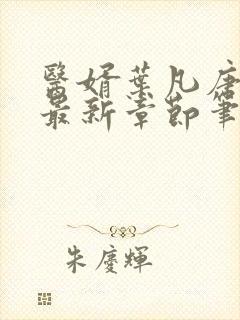 醫婿葉凡唐
最新章節筆
朱慶輝